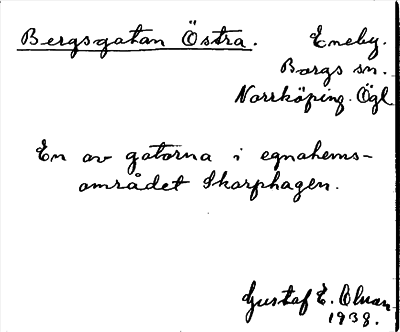 Bergsgatan Östra. Eneby.
Borgs sn.
Norrköping. Ögl
En av gatorna i egnahems-
området Skarphagen.
Gustaf E. Olsson
1938.